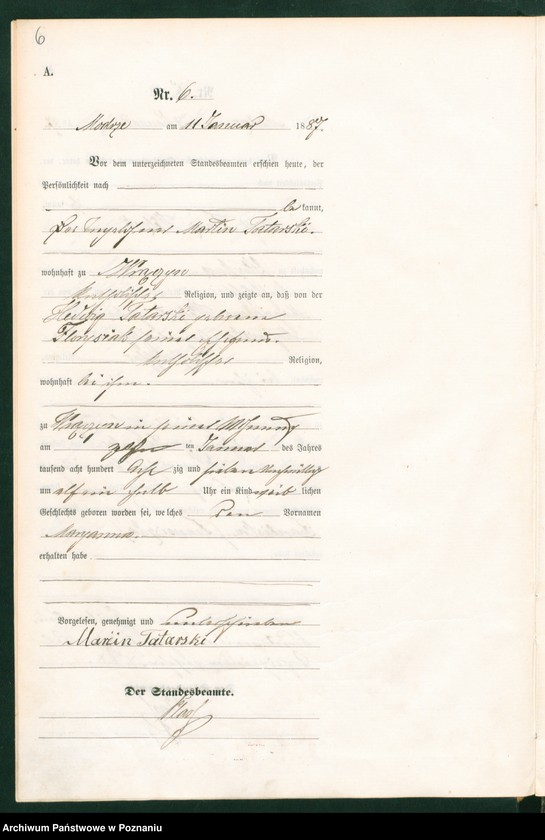 6
A.
Nr. 6.
Modrze am 11 Januar 1887.
Vor dem unterzeichneten Standesbeamten erschien heute, der
Persönlichkeit nach
be kannt,
Der Martin Tatarski.
wohnhaft zu
katholischer Religion, und zeigte an, daß von der
Hedwig Tatarski geborene
Florysiak seiner Ehefrau
katholischer Religion,
wohnhaft bei ihm.
zu in seiner Wohnung
am zehn ten Januar des Jahres
tausend acht hundert acht zig und sieben Nachmittags
um elf ein halb Uhr ein Kind weib lichen
Geschlechts geboren worden sei, welches den Vornamen
Maryanna.
erhalten habe
Vorgelesen, genehmigt und unterschrieben
Marcin Tatarski
Der Standesbeamte.
Archiwum Państwowe w Poznaniu